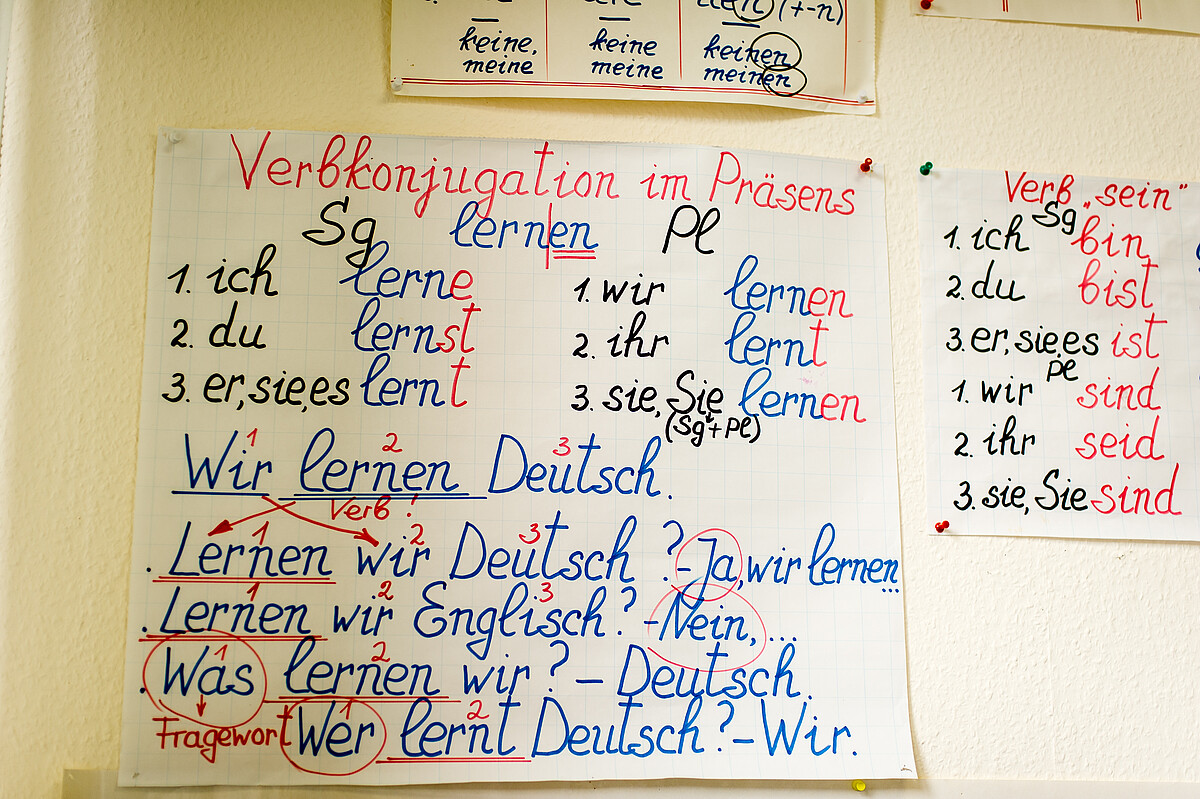 (+-n)
keine, keine keinen
meine meine meinen
Verbkonjugation im Präsens
Sg lernen Pl
1. ich lerne 1. wir lernen
2. du lernst 2. ihr lernt
3. er, sie, es lernt 3. sie, Sie lernen
(Sg + Pl)
1 2 3
Wir lernen Deutsch.
Verb!
1 2 3
. Lernen wir Deutsch? - Ja, wir lernen...
1 2 3
. Lernen wir Englisch? - Nein, ...
1 2
. Was lernen wir? - Deutsch.
1 2
Fragewort Wer lernt Deutsch? - Wir.
Verb „sein"
Sg
1. ich bin
2. du bist
3. er, sie, es ist
Pl
1. wir sind
2. ihr seid
3. sie, Sie sind